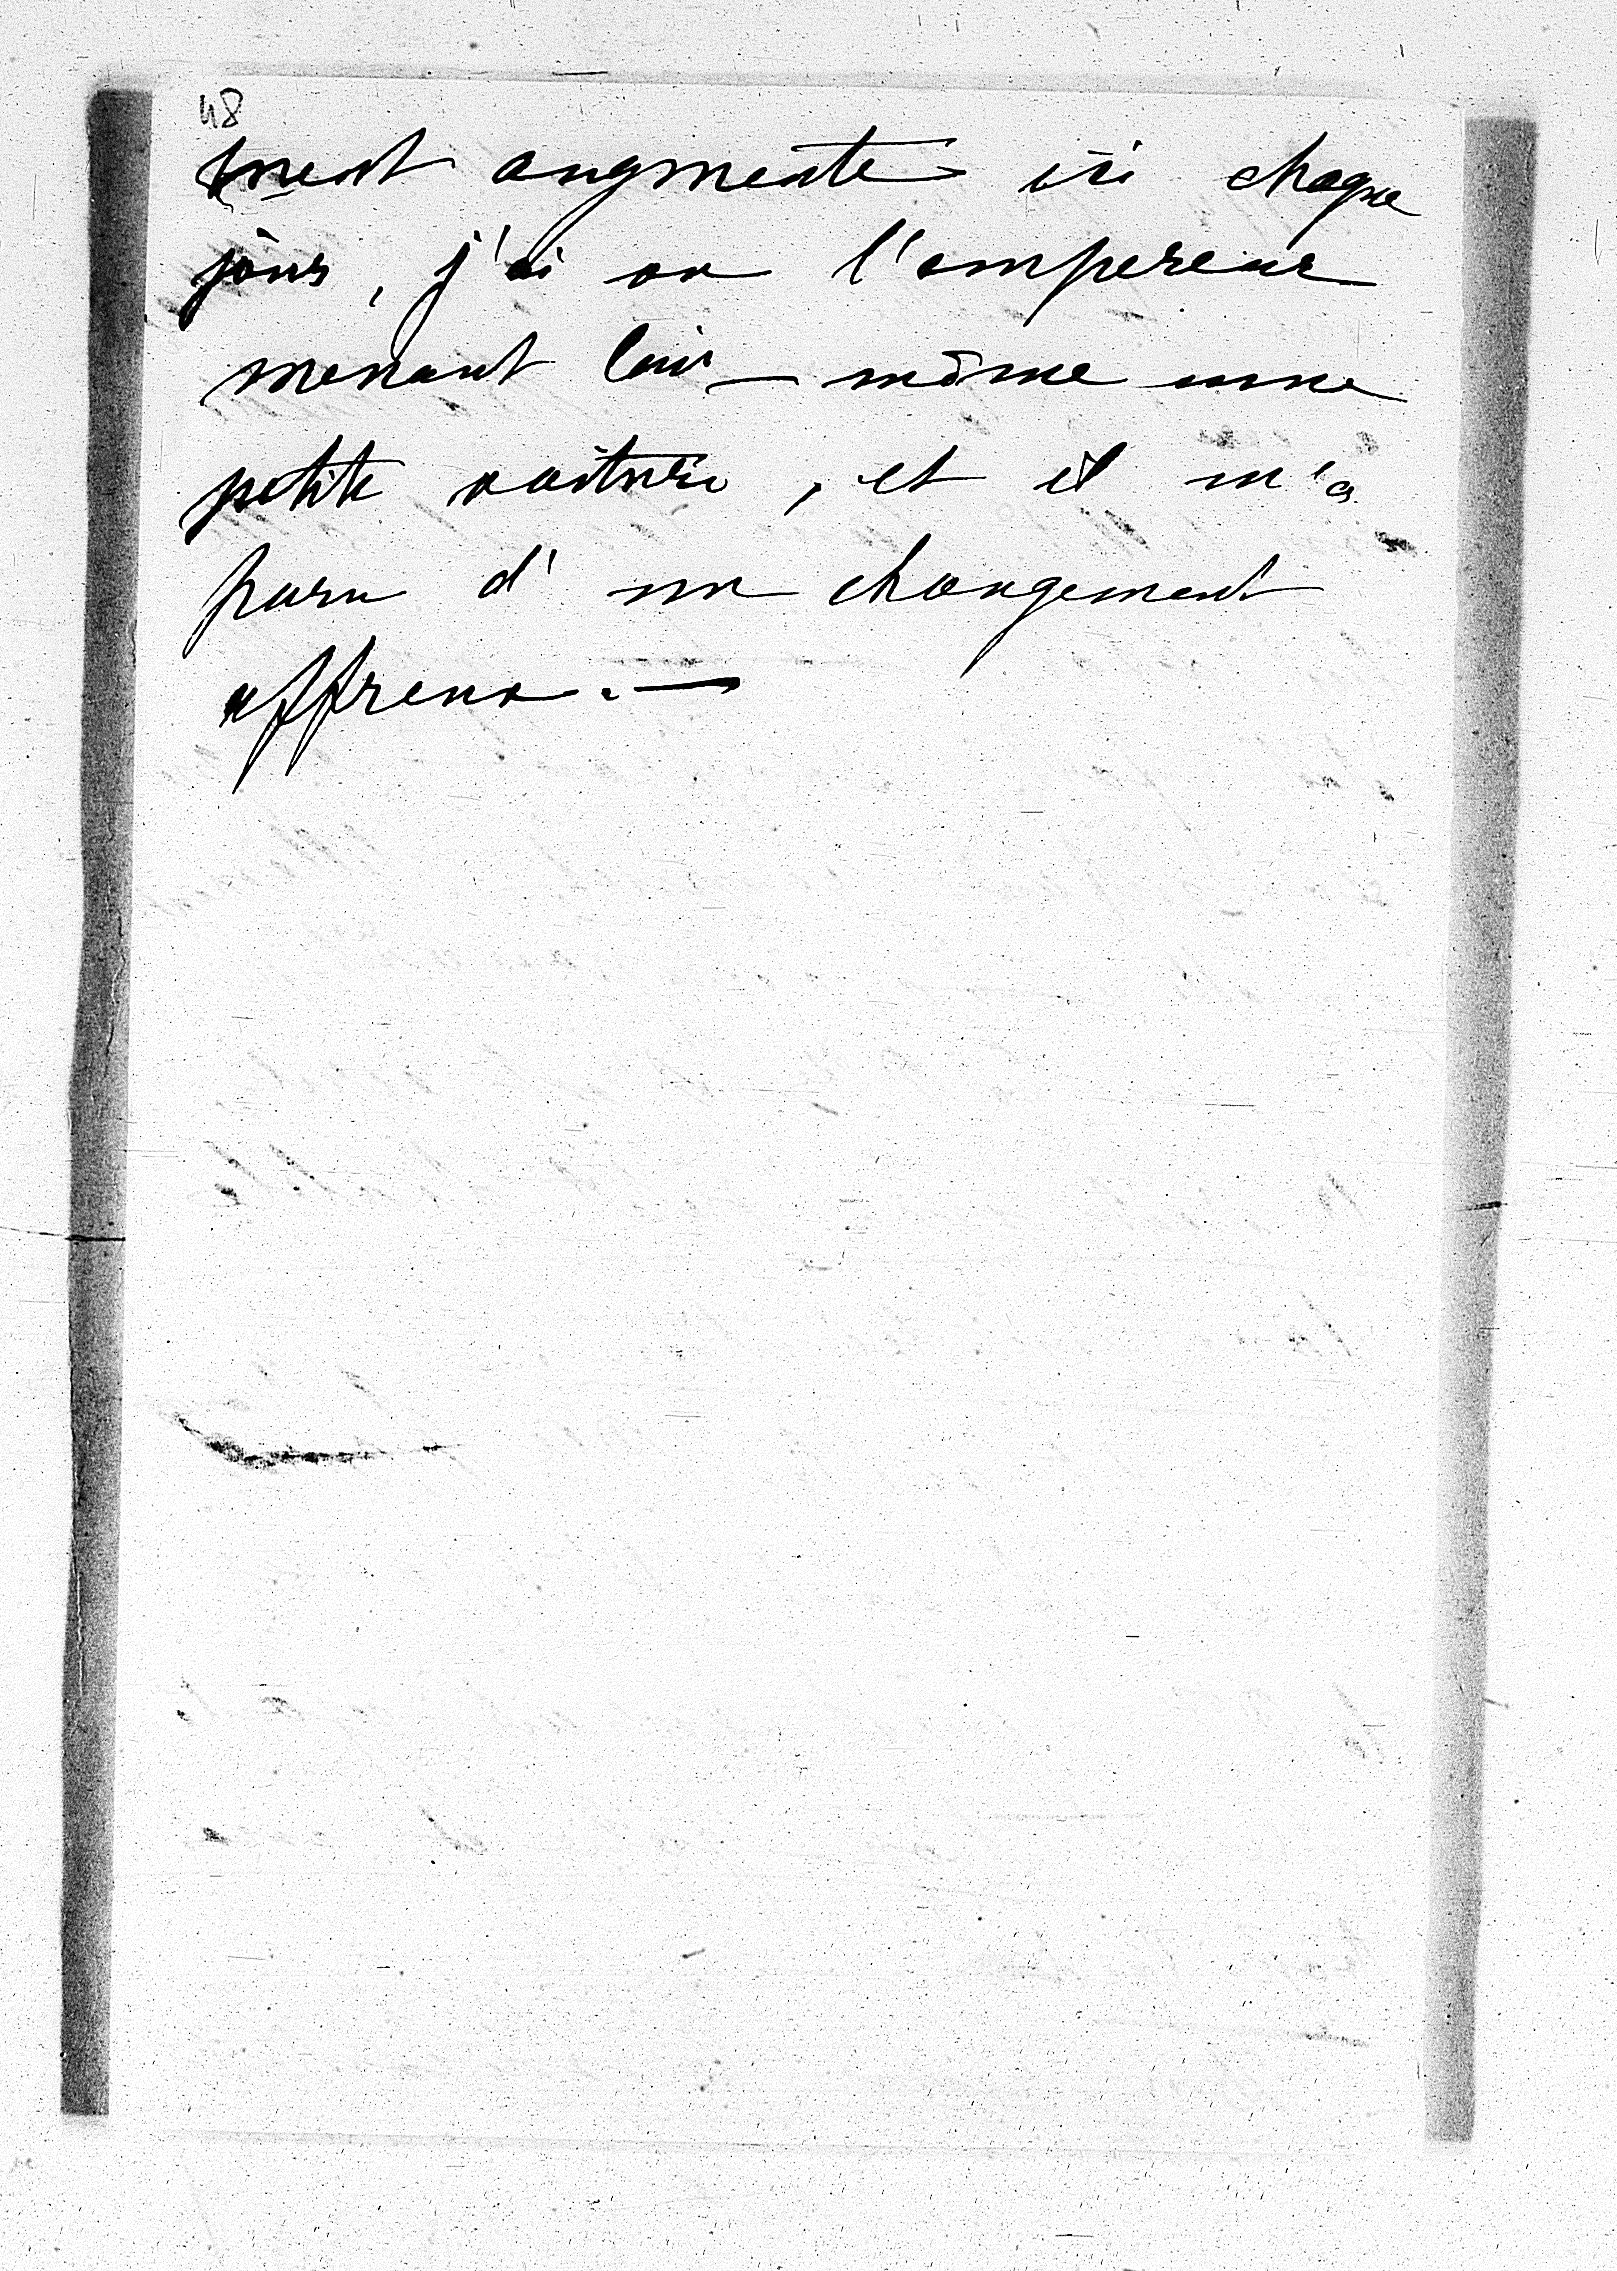 48
ment augmente ici chaque
jour, j'ai vu l'empereur
menant lui-même une
petite voiture, et il m'a
paru d'un changement
affreux. —